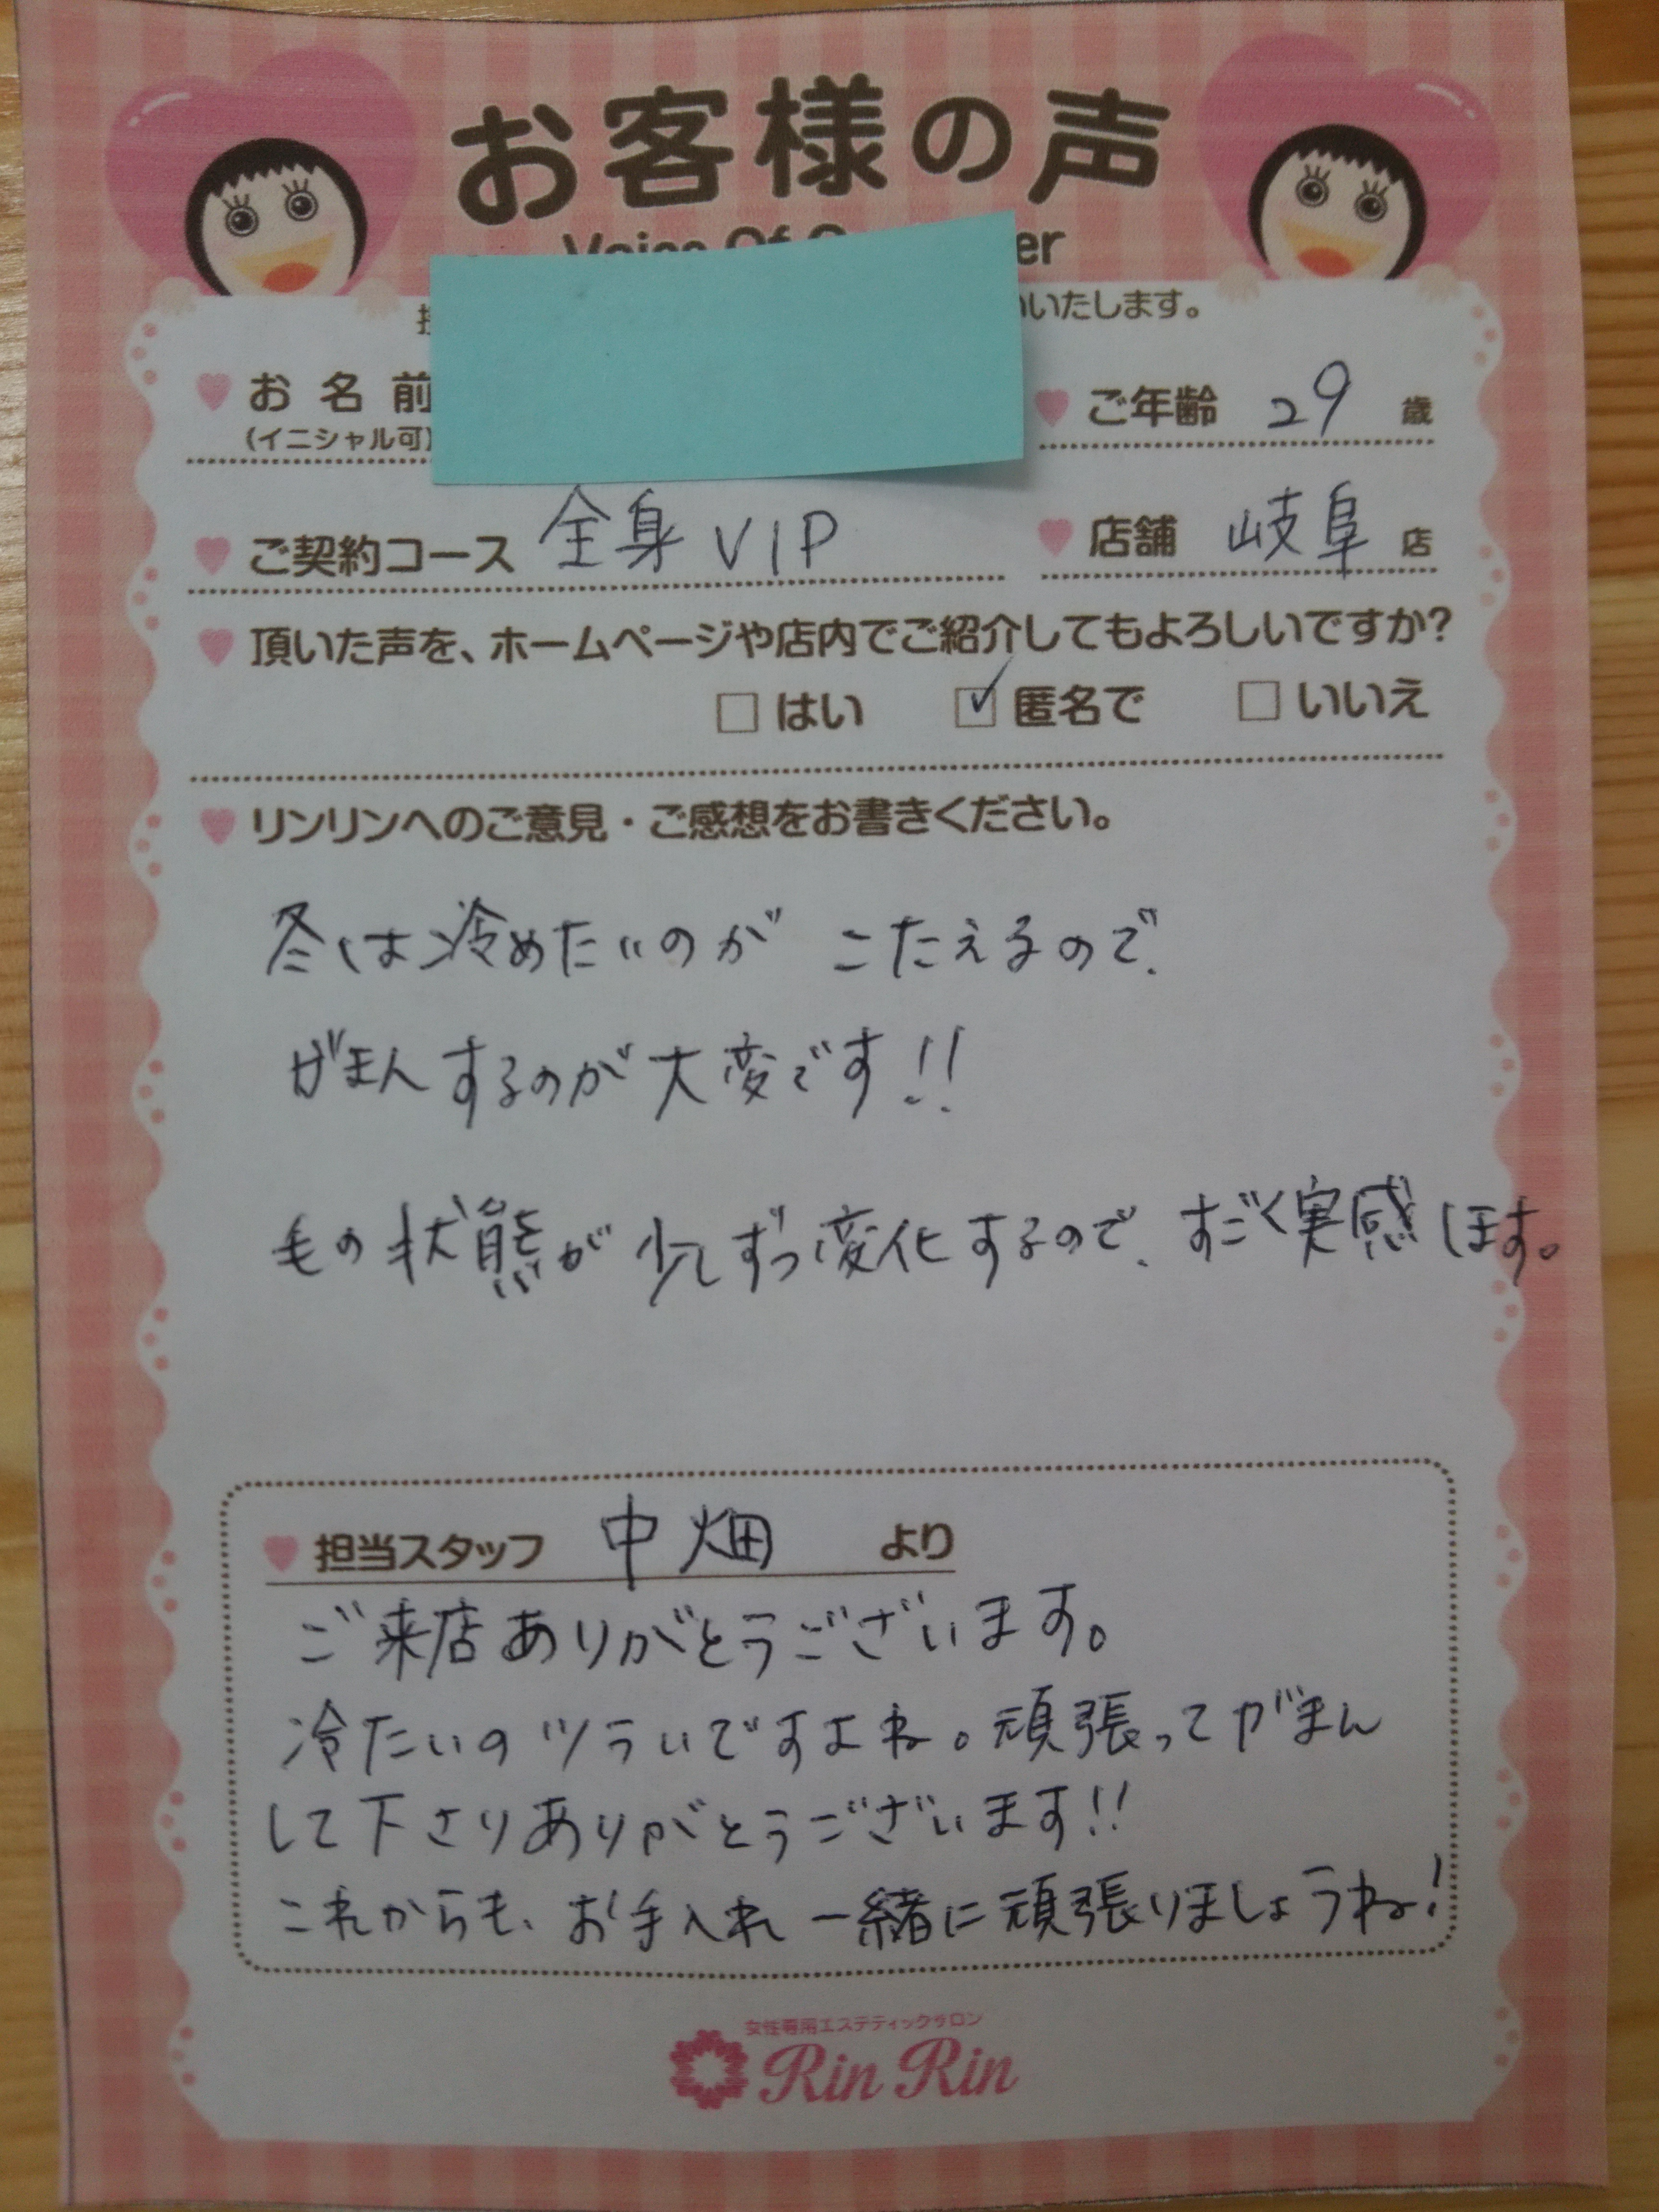 お客様の声
いたします。
お名前
(イニシャル可)
ご年齢 29 歳
ご契約コース 全身VIP
店舗 岐阜 店
頂いた声を、ホームページや店内でご紹介してもよろしいですか?
はい 匿名で いいえ
リンリンへのご意見・ご感想をお書きください。
冬は冷めたいのが こたえるので、
がまんするのが大変です!!
毛の状態が少しずつ変化するので、すごく実感します。
担当スタッフ 中畑 より
ご来店ありがとうございます。
冷たいのツラいですよね。頑張ってがまん
して下さりありがとうございます!!
これからも、お手入れ一緒に頑張りましょうね!
女性専用エステティックサロン
Rin Rin